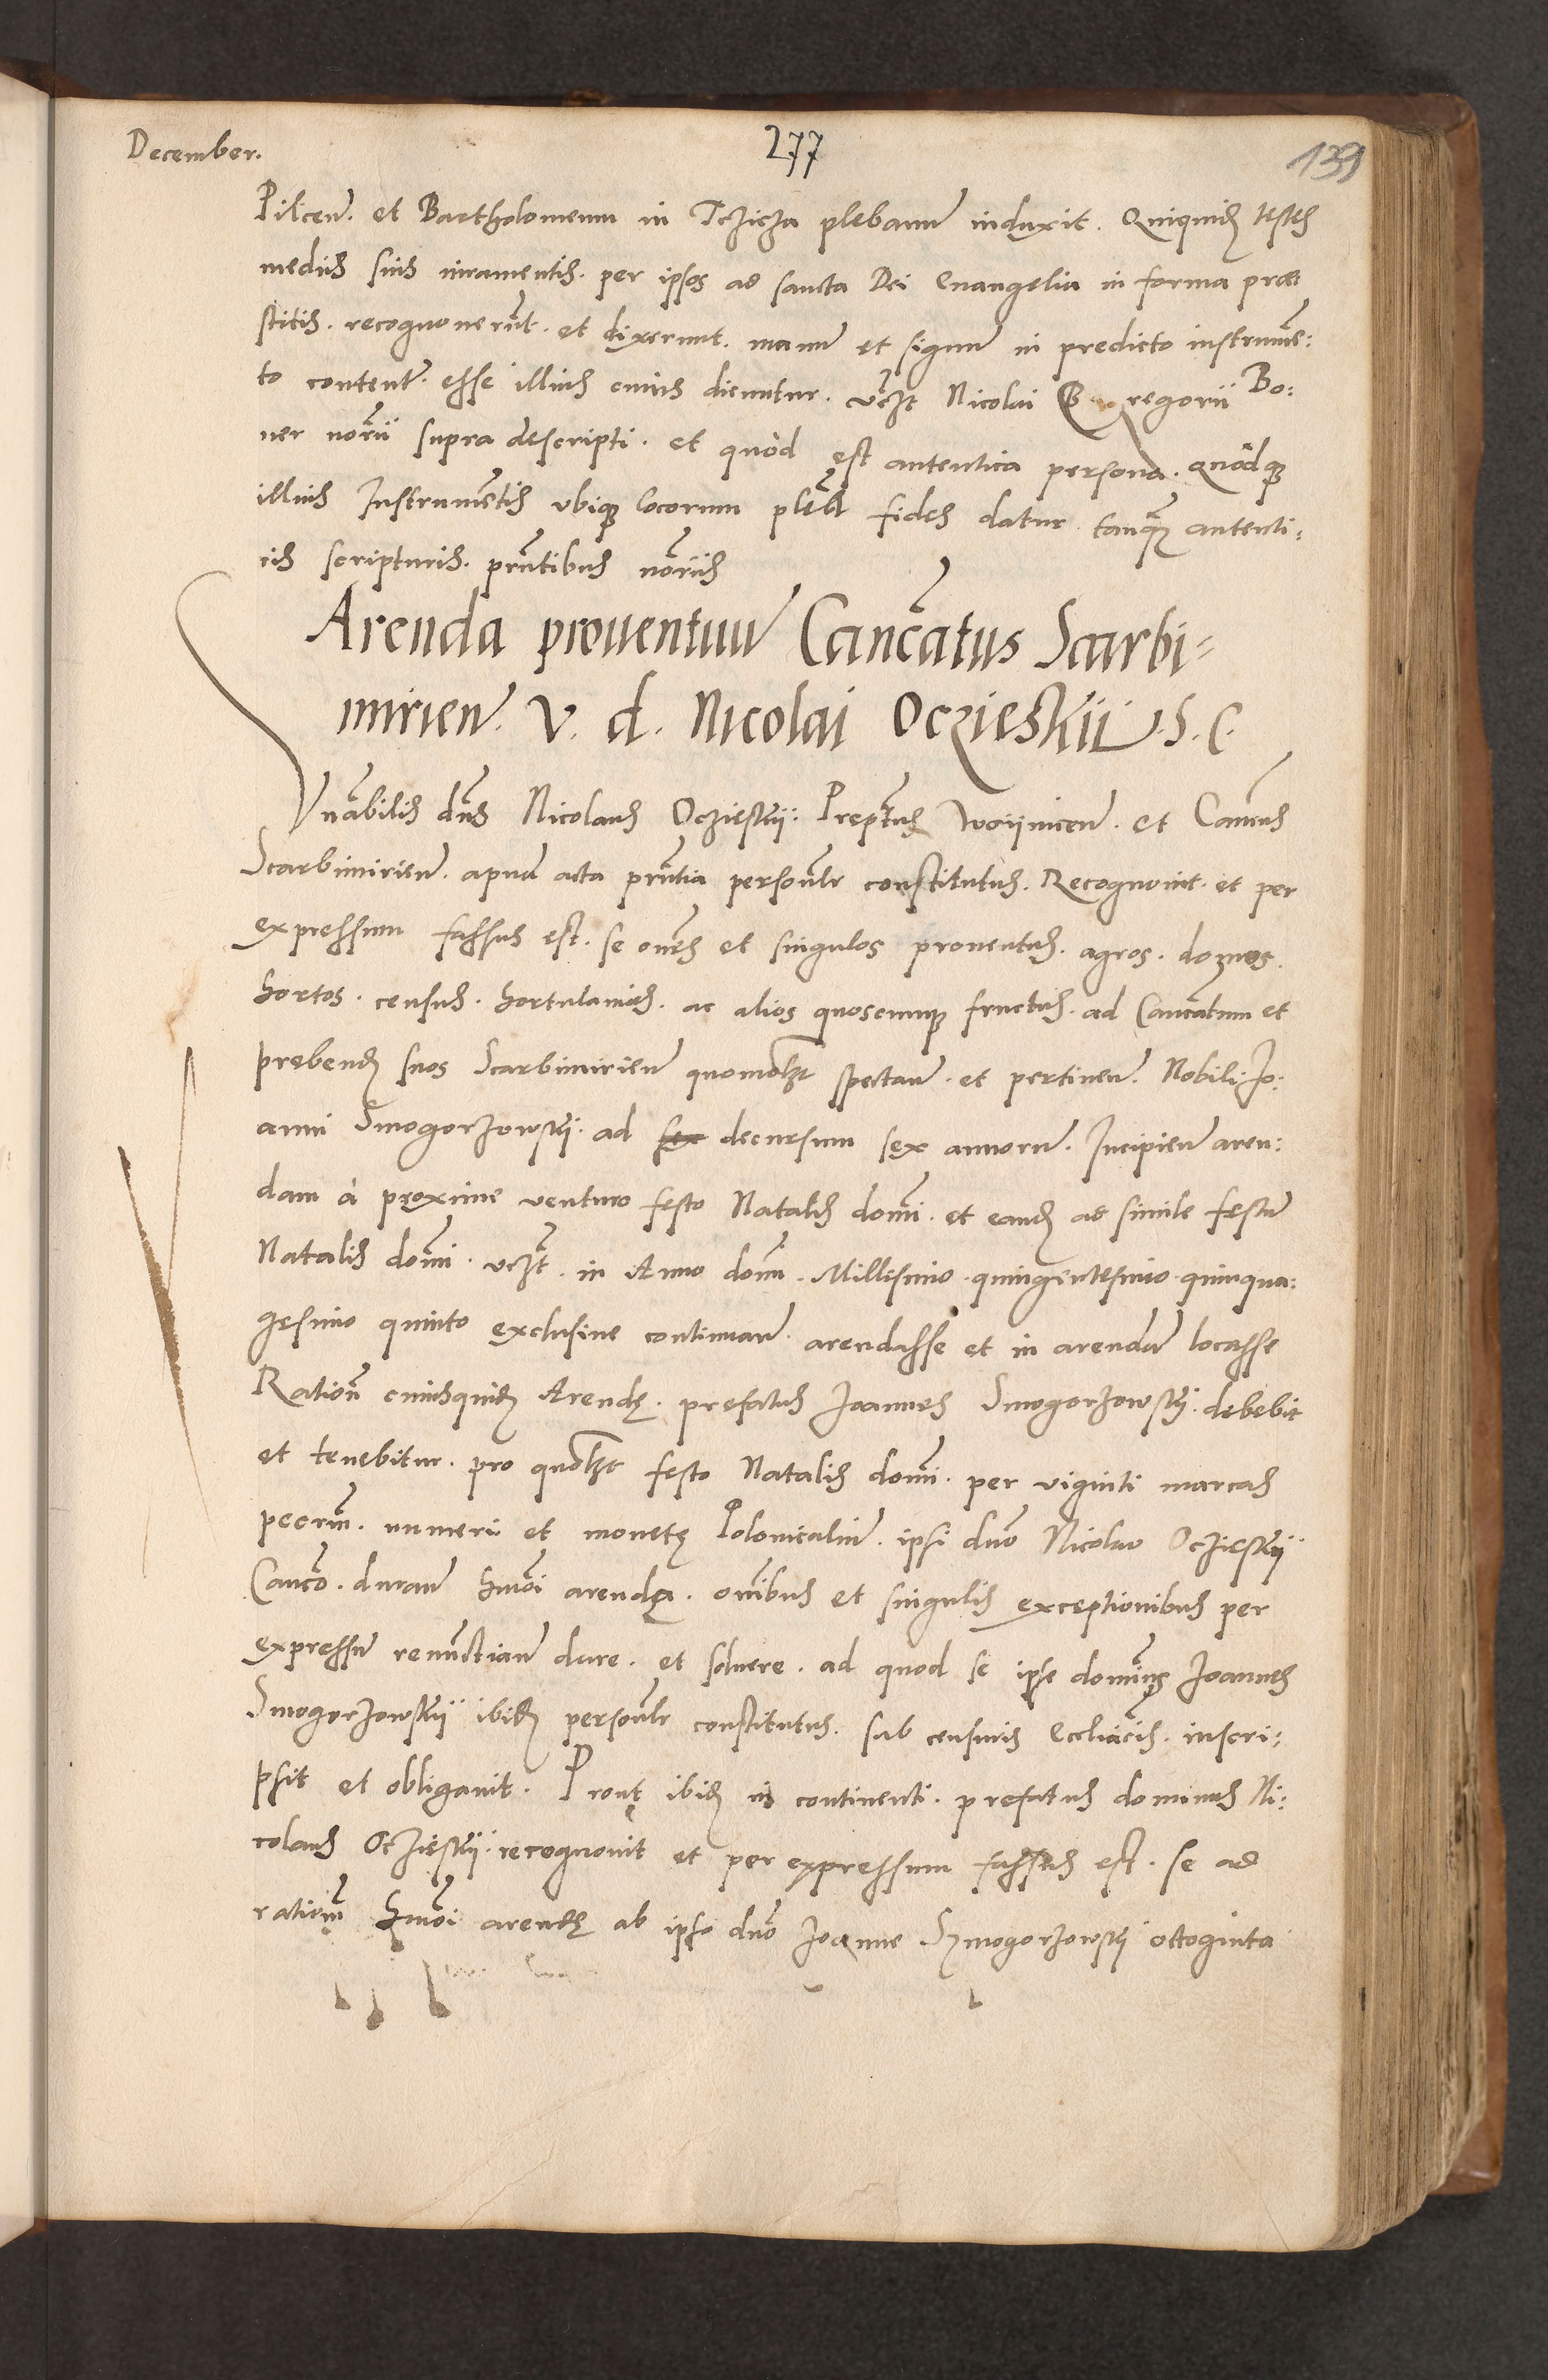 December.
277
139
Pilcen̄. et Bartholomeum in Tczicza plebanū induxit. Quiquid₃ testes
mediis suis iuramentis. per ipsos ad sancta Dei Euangelia in forma præ
stitis. recognouerūt. et dixerunt. manū et signū in predicto instrumē:
to content̄. esse illius cuius dicuntur. vc̄zt Nicolai Gregorii Bo:
ner nor̄ii supra descripti. et quòd est autentica persona. quòdq₃
illius Instrumētis vbiq₃ locorum plēa fides datur. tanq̄₃ autenti:
cis scripturis. pn̄tibus nor̄iis
Arenda prouentuū Canc̄atus Scarbi=
mirien̄. V. d. Nicolai Oczieskii. S. C.
Vn̄abilis dn̄s Nicolaus Oczieskii. Prept̄us Woijnicen̄. et Cancūs
Scarbimirien̄. apud acta pn̄tia personlr̄ constitutus. Recognouit. et per
expressum fassus est. se om̄es et singulos prouentus. agros. domos.
hortos. census. hortulanias. ac alios quoscunq₃ fructus. ad Canc̄atum et
prebend₃ suos Scarbimirien̄ quomōlt spectan̄. et pertinen̄. Nobili Jo:
anni Smogorzowskj. ad sex decursum sex annorū. Incipien̄ aren:
dam à proxime venturo festo Natalis domī. et eand₃ ad simile festū
Natalis domī. vc̄zt. in Anno domī. Millesimo. quingentesimo. quinqua:
gesimo quinto exclusiue continuan̄. arendasse et in arendā locasse
Ration̄ cuiusquid₃ Arendę. prefatus Joannes Smogorzowskj. debebit
et tenebitur. pro quolt̄ festo Natalis domī. per viginti marcas
pecun̄. numeri et monetę Polonicaliū. ipsi dn̄o Nicolao Oczieskij
Canc̄o. duran̄ hmōi arenda. om̄ibus et singulis exceptionibus per
expressū renūctian̄ dare. et soluere. ad quod se ipse domīnus Joannes
Smogorzowskij ibid₃ personlr̄ constitutus. sub censuris Eccliācis. inscri:
psit et obligauit. Prout ibid₃ in continenti. prefatus dominus Ni:
colaus Oczieskij. recognouit et per expressum fassus est. se ad
ration̄ hmōi arendę ab ipso dn̄o Joanne Szmogorzowskj octoginta